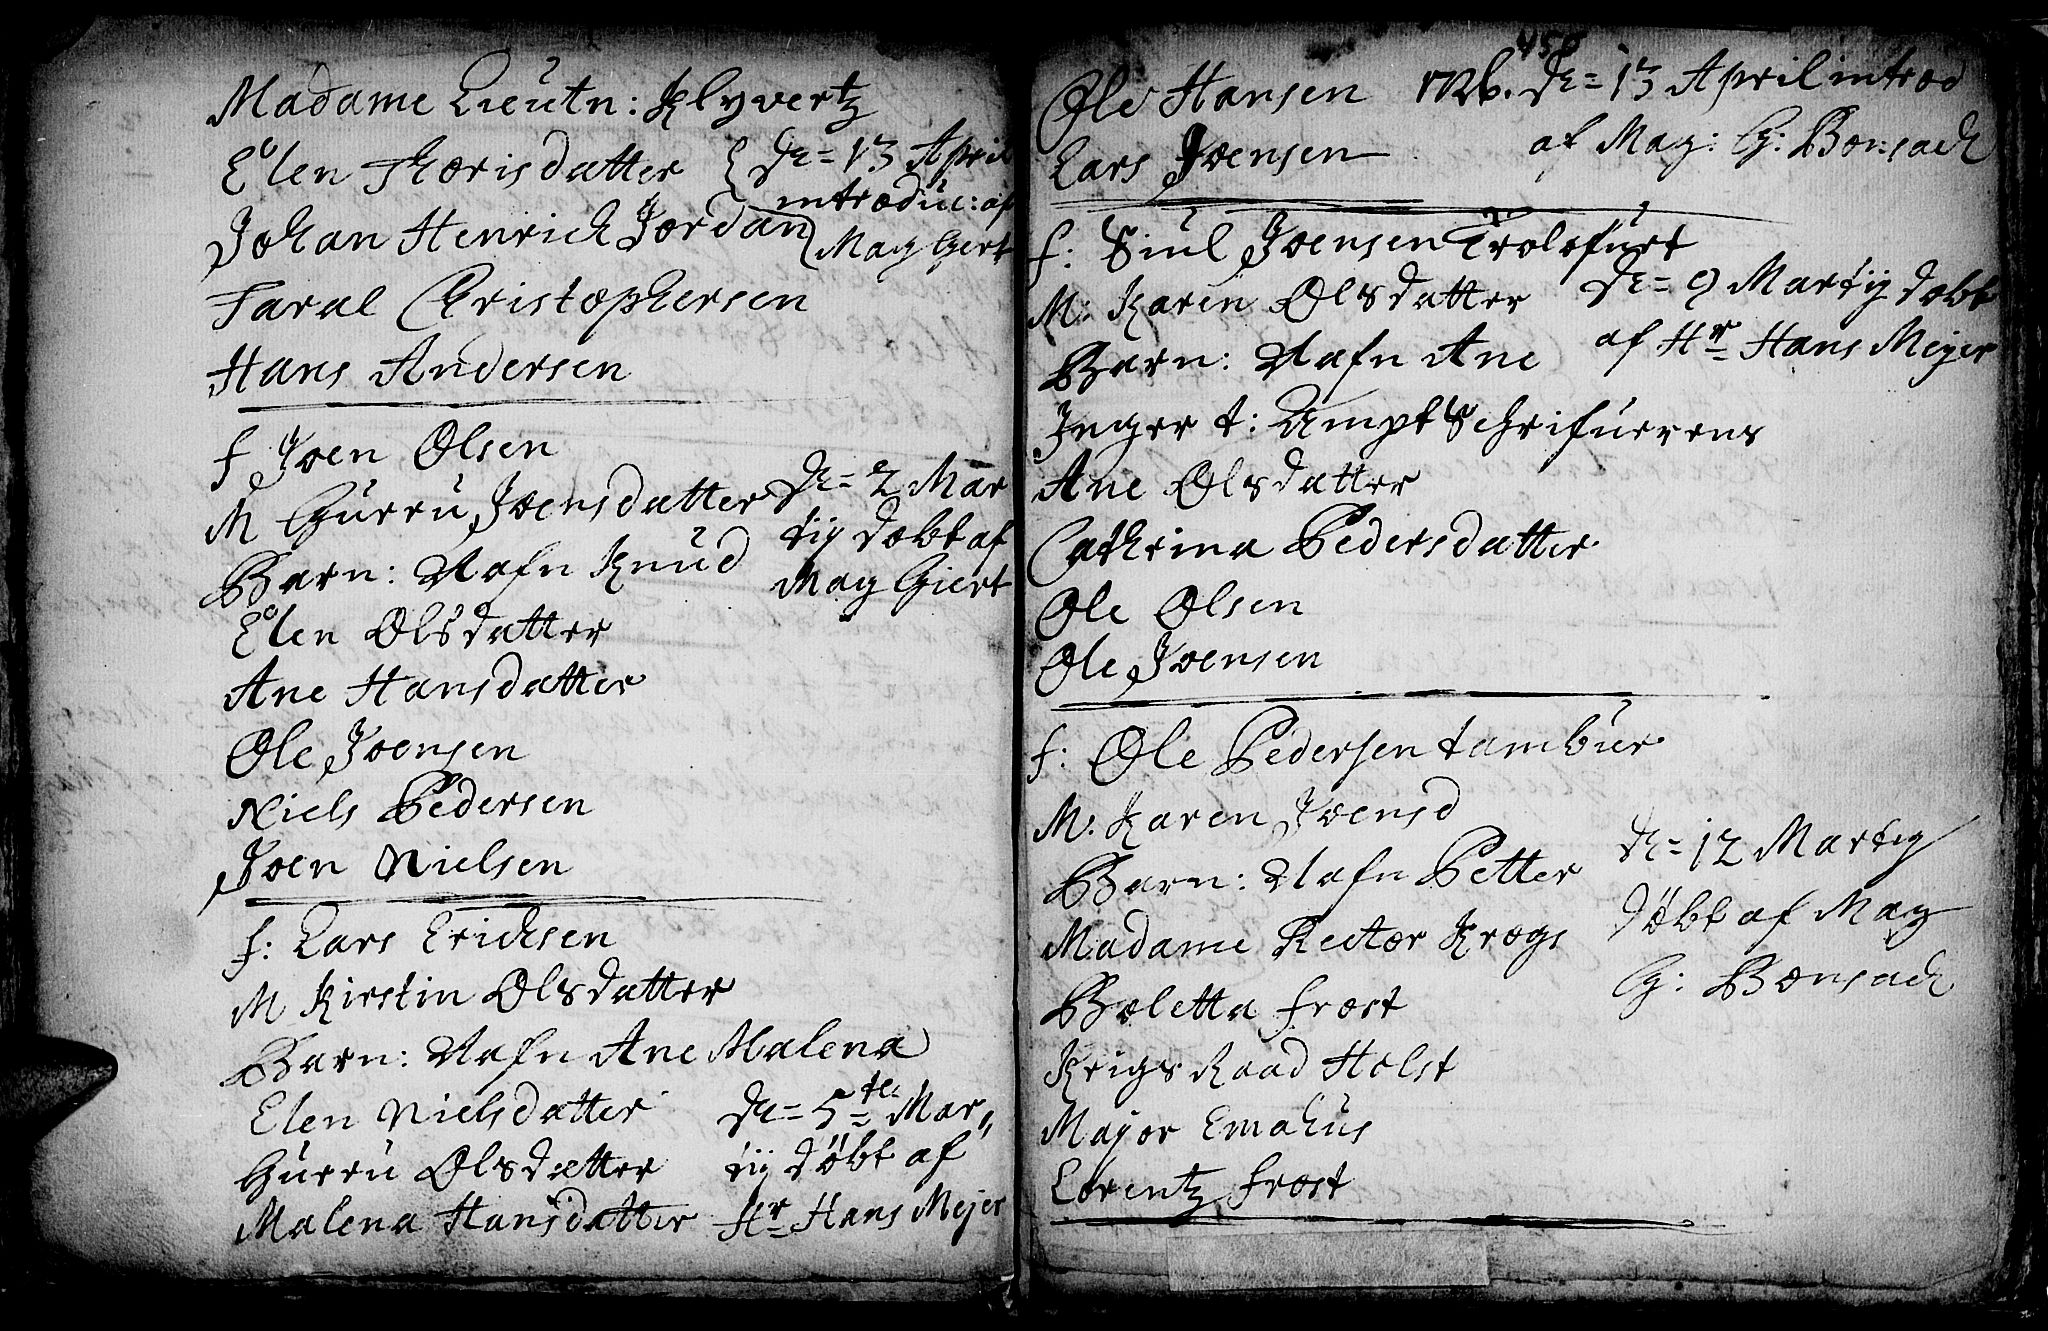 Madame Lieutn: Klyvertz
Elen Thorisdatter
d= 13 April
introduc: af
Mag Giert
Johan Henrich Jordan
Taral Christophersen
Hans Andersen
f Joen Olsen
M Gurru Joensdatter
d= 2 Mar
tij døbt af
Mag Giert
Barn: Nafn Knud
Elen Olsdatter
Ane Hansdatter
Ole Joensen
Niels Pedersen
Joen Nielsen
f: Lars Erichsen
M Kirstin Olsdatter
Barn: Nafn Ane Malena
Elen Nielsdatter
Gurru Olsdatter
Malena Hansdatter
d= 5te Mar,,
tij døbt af
Hr Hans Mejer
450
Ole Hansen 1726. d= 13 April introd
Lars Joensen af Mag: G: Bonsach
f: Siul Joensen Trolofurt
M: Karen Olsdatter
d= 9 Martij døbt
af Hr Hans Mejer
Barn: Nafn Ane
Inger t: AmptSchrifuerens
Ane Olsdatter
Cathrina Pedersdatter
Ole Olsen
Ole Joensen
f: Ole Pedersen tambur
M: Karen Joensd
Barn: Nafn Petter
d= 12 Martij
døbt af Mag
G: Bonsach
Madame Rector Krogs
Boletta Frost
Krigs Raad Holst
Major Emahus
Lorentz Frost